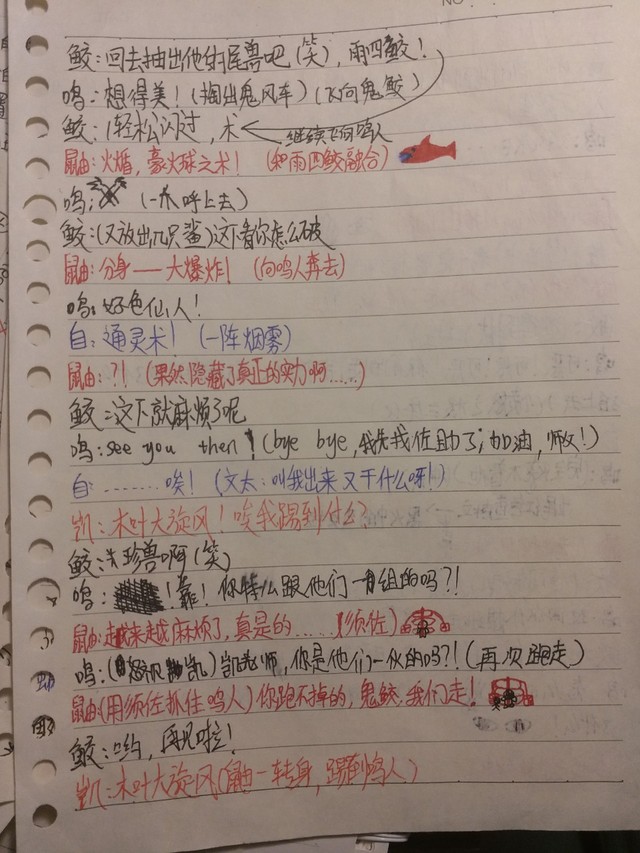 鲛:回去抽出他的尾兽吧(笑),雨四鲛!
鸣:想得美!(掏出鬼风车)(飞向鬼鲛)
鲛:(轻松闪过,术 继续飞向鸣人
鼠由:火遁,豪火球之术!(和雨四鲛融合)
鸣:(一爪呼上去)
鲛:(又放出几只鲨)这下看你怎么破
鼠由:分身——大爆炸!(向鸣人奔去)
鸣:好色仙人!
自:通灵术!(一阵烟雾)
鼠由:?!(果然隐藏了真正的实力啊……)
鲛:这下就麻烦了呢
鸣:see you then!(bye bye,我先找佐助了;加油,师父!)
自:……唉!(文太:叫我出来又干什么呀!)
凯:木叶大旋风!唉我踢到什么?
鲛:珍兽啊(笑)
鸣:靠!你特么跟他们一组的吗?!
鼠由:越来越麻烦了,真是的……(须佐)
鸣:(怒视凯)凯老师,你是他们一伙的吗?!(再次跑走)
鼠由(用须佐抓住鸣人)你跑不掉的,鬼鲛,我们走!
鲛:哟,再见啦!
凯:木叶大旋风(鼠由一转身,踢到鸣人)